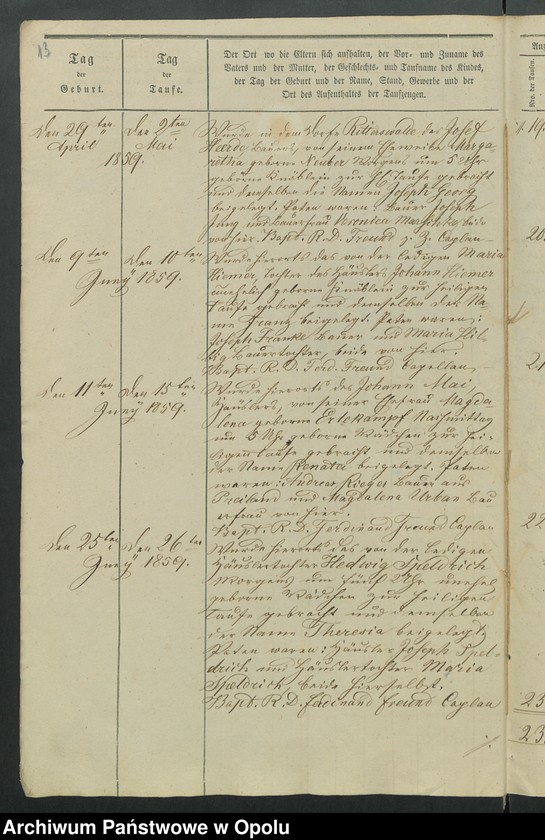 13
Tag
der
Geburt.
Tag
der
Taufe.
Der Ort wo die Eltern sich aufhalten, der Vor- und Zuname des
Vaters und der Mutter, der Geschlechts- und Taufname des Kindes,
der Tag der Geburt und der Name, Stand, Gewerbe und der
Ort des Aufenthaltes der Taufzeugen.
Nro. der Taufen.
Den 29ten April
Den 2ten Mai
1859.
Wurde in dem Dorfe Ritterswalde des Josef
Heerde, Bauers, von seinem Eheweibe Marga-
retha geborne Neuber Morgens um 5 Uhr
geborne Knäblein zur Hl. Taufe gebracht
und demselben die Namen Joseph Georg
beigelegt. Paten waren: Bauer Joseph
Jung und Bauerfrau Veronica beide
von hier. Bapt. R. D. Freund z. Z. Caplan
Den 9ten
Den 10ten
Juny 1859.
Wurde hierorts das von der ledigen Maria
Riemer, Tochter des Häuslers Johann Riemer
unehelich geborne Knäblein zur heiligen
Taufe gebracht und demselben der Na-
me Franz beigelegt. Paten waren:
Joseph Franke Bauer und Maria Hil-
big Bauertochter, beide von hier.
Bapt. R. D. Ferd. Freund Capellan
Den 11ten
Den 15ten
Juny 1859.
Wurde hierorts des Johann Mai,
Häuslers, von seiner Ehefrau Magda-
lena geborne Ertekampf Nachmittag
um 5 Uhr geborne Mädchen zur hei-
ligen Taufe gebracht und demselben
der Name Renata beigelegt. Paten
waren: Andreas Rieger Bauer aus
Preiland und Magdalena Urban Bau
erfrau von hier.
Bapt. R. D. Ferdinand Freund Caplan
Den 25ten
Den 26ten
Juny 1859.
Wurde hierorts das von der ledigen
Häuslertochter Hedwig Speldrich
Morgens um fünf Uhr unehel
geborne Mädchen zur heiligen
Taufe gebracht und demselben
der Name Theresia beigelegt
Paten waren: Häusler Joseph Spel-
drich und Häuslertochter Maria
Speldrich beide hierselbst.
Bapt. R. D. Ferdinand Freund Caplan
Archiwum Państwowe w Opolu